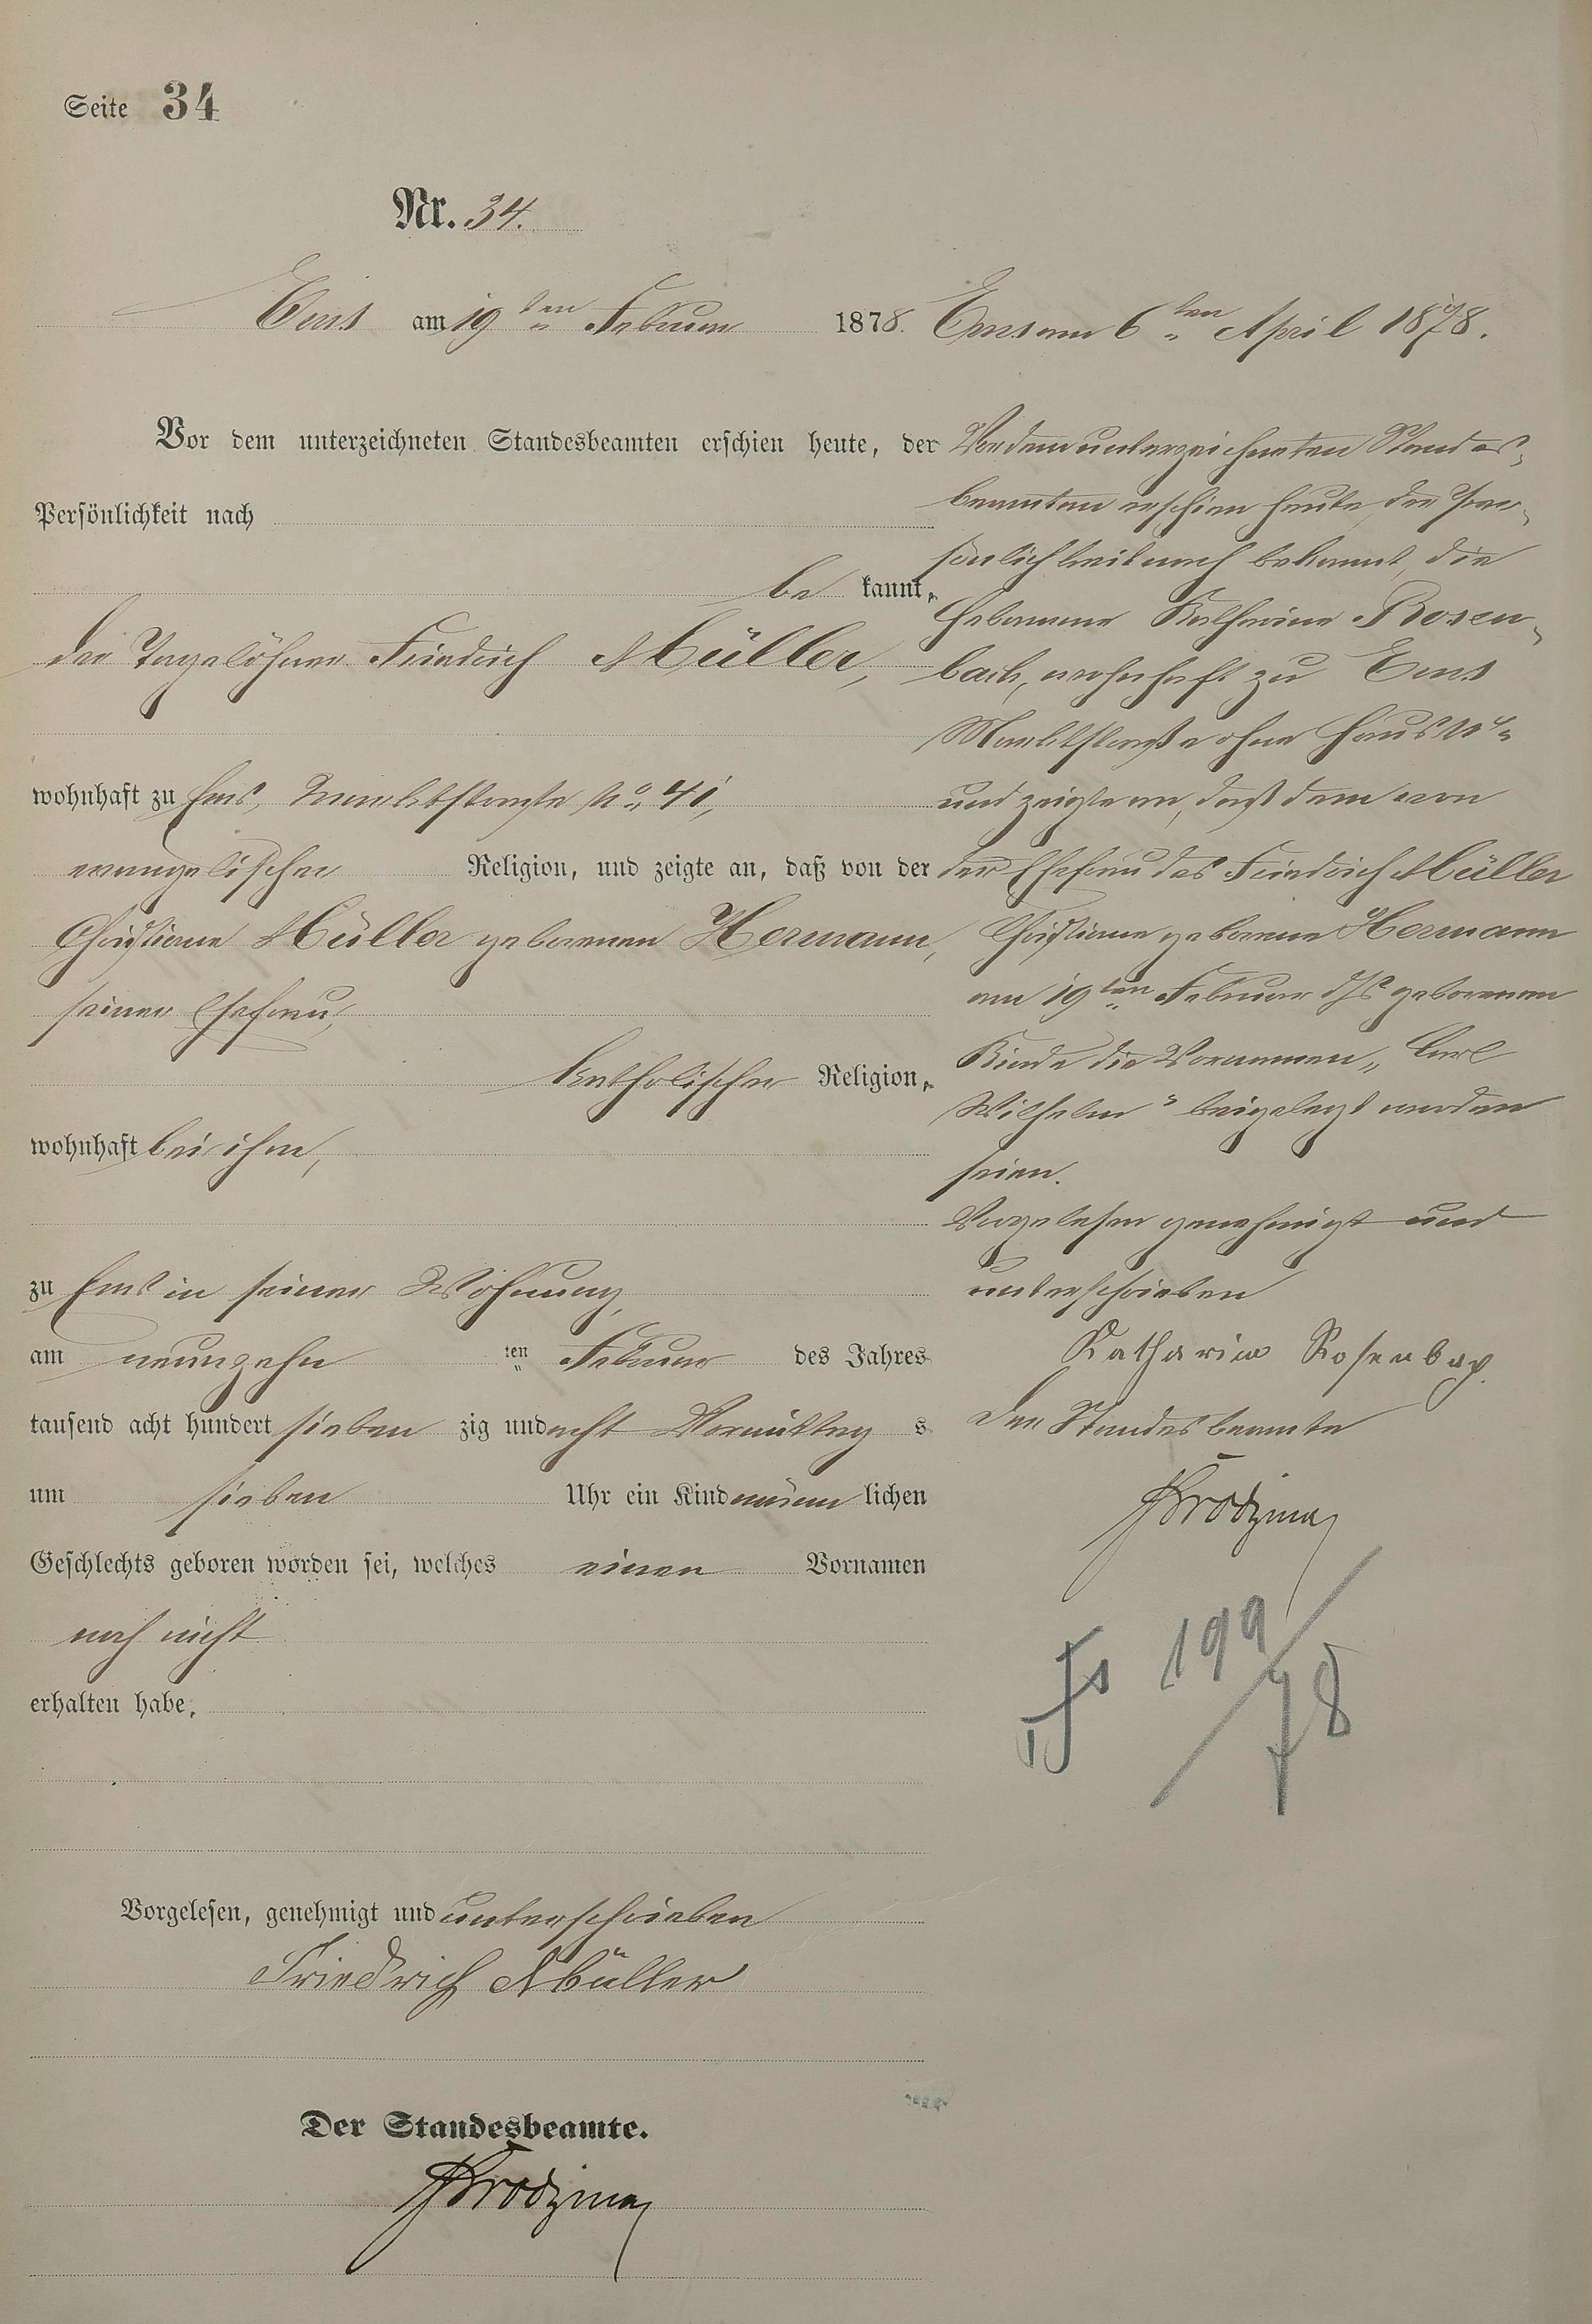 Seite 34
Nr. 34.
Ems am 19ten Februar 1878.
Vor dem unterzeichneten Standesbeamten erschien heute, der
Persönlichkeit nach
be kannt,
der Tagelöhner Friedrich Müller,
wohnhaft zu Ems, Marktstraße No. 41,
evangelischer Religion, und zeigte an, daß von der
Christiane Müller geborenen Hermann,
seiner Ehefrau,
katholischer Religion,
wohnhaft bei ihm,
zu Ems in seiner Wohnung,
am neunzehn ten Februar des Jahres
tausend acht hundert sieben zig und acht Vormittag s
um sieben Uhr ein Kind männ lichen
Geschlechts geboren worden sei, welches einen Vornamen
noch nicht
erhalten habe.
Vorgelesen, genehmigt und unterschrieben
Friedrich Müller
Der Standesbeamte.
Ems am 6ten April 1878.
Vor dem unterzeichneten Standes-
beamten erschien heute, der Per-
sönlichkeit nach bekannt, die
Hebamme Katharina Rosen-
bach, wohnhaft zu Ems
Marktstraße ohne Haus No.
und zeigte an, daß dem von
der Ehefrau des Friedrich Müller
Christiane geborene Hermann
am 19ten Februar d/Js geborenen
Kinde die Vornamen „Carl
Wilhelm" beigelegt worden
seien.
Vorgelesen genehmigt und
unterschrieben
Katharina Rosenbach
Der Standesbeamte
199/78